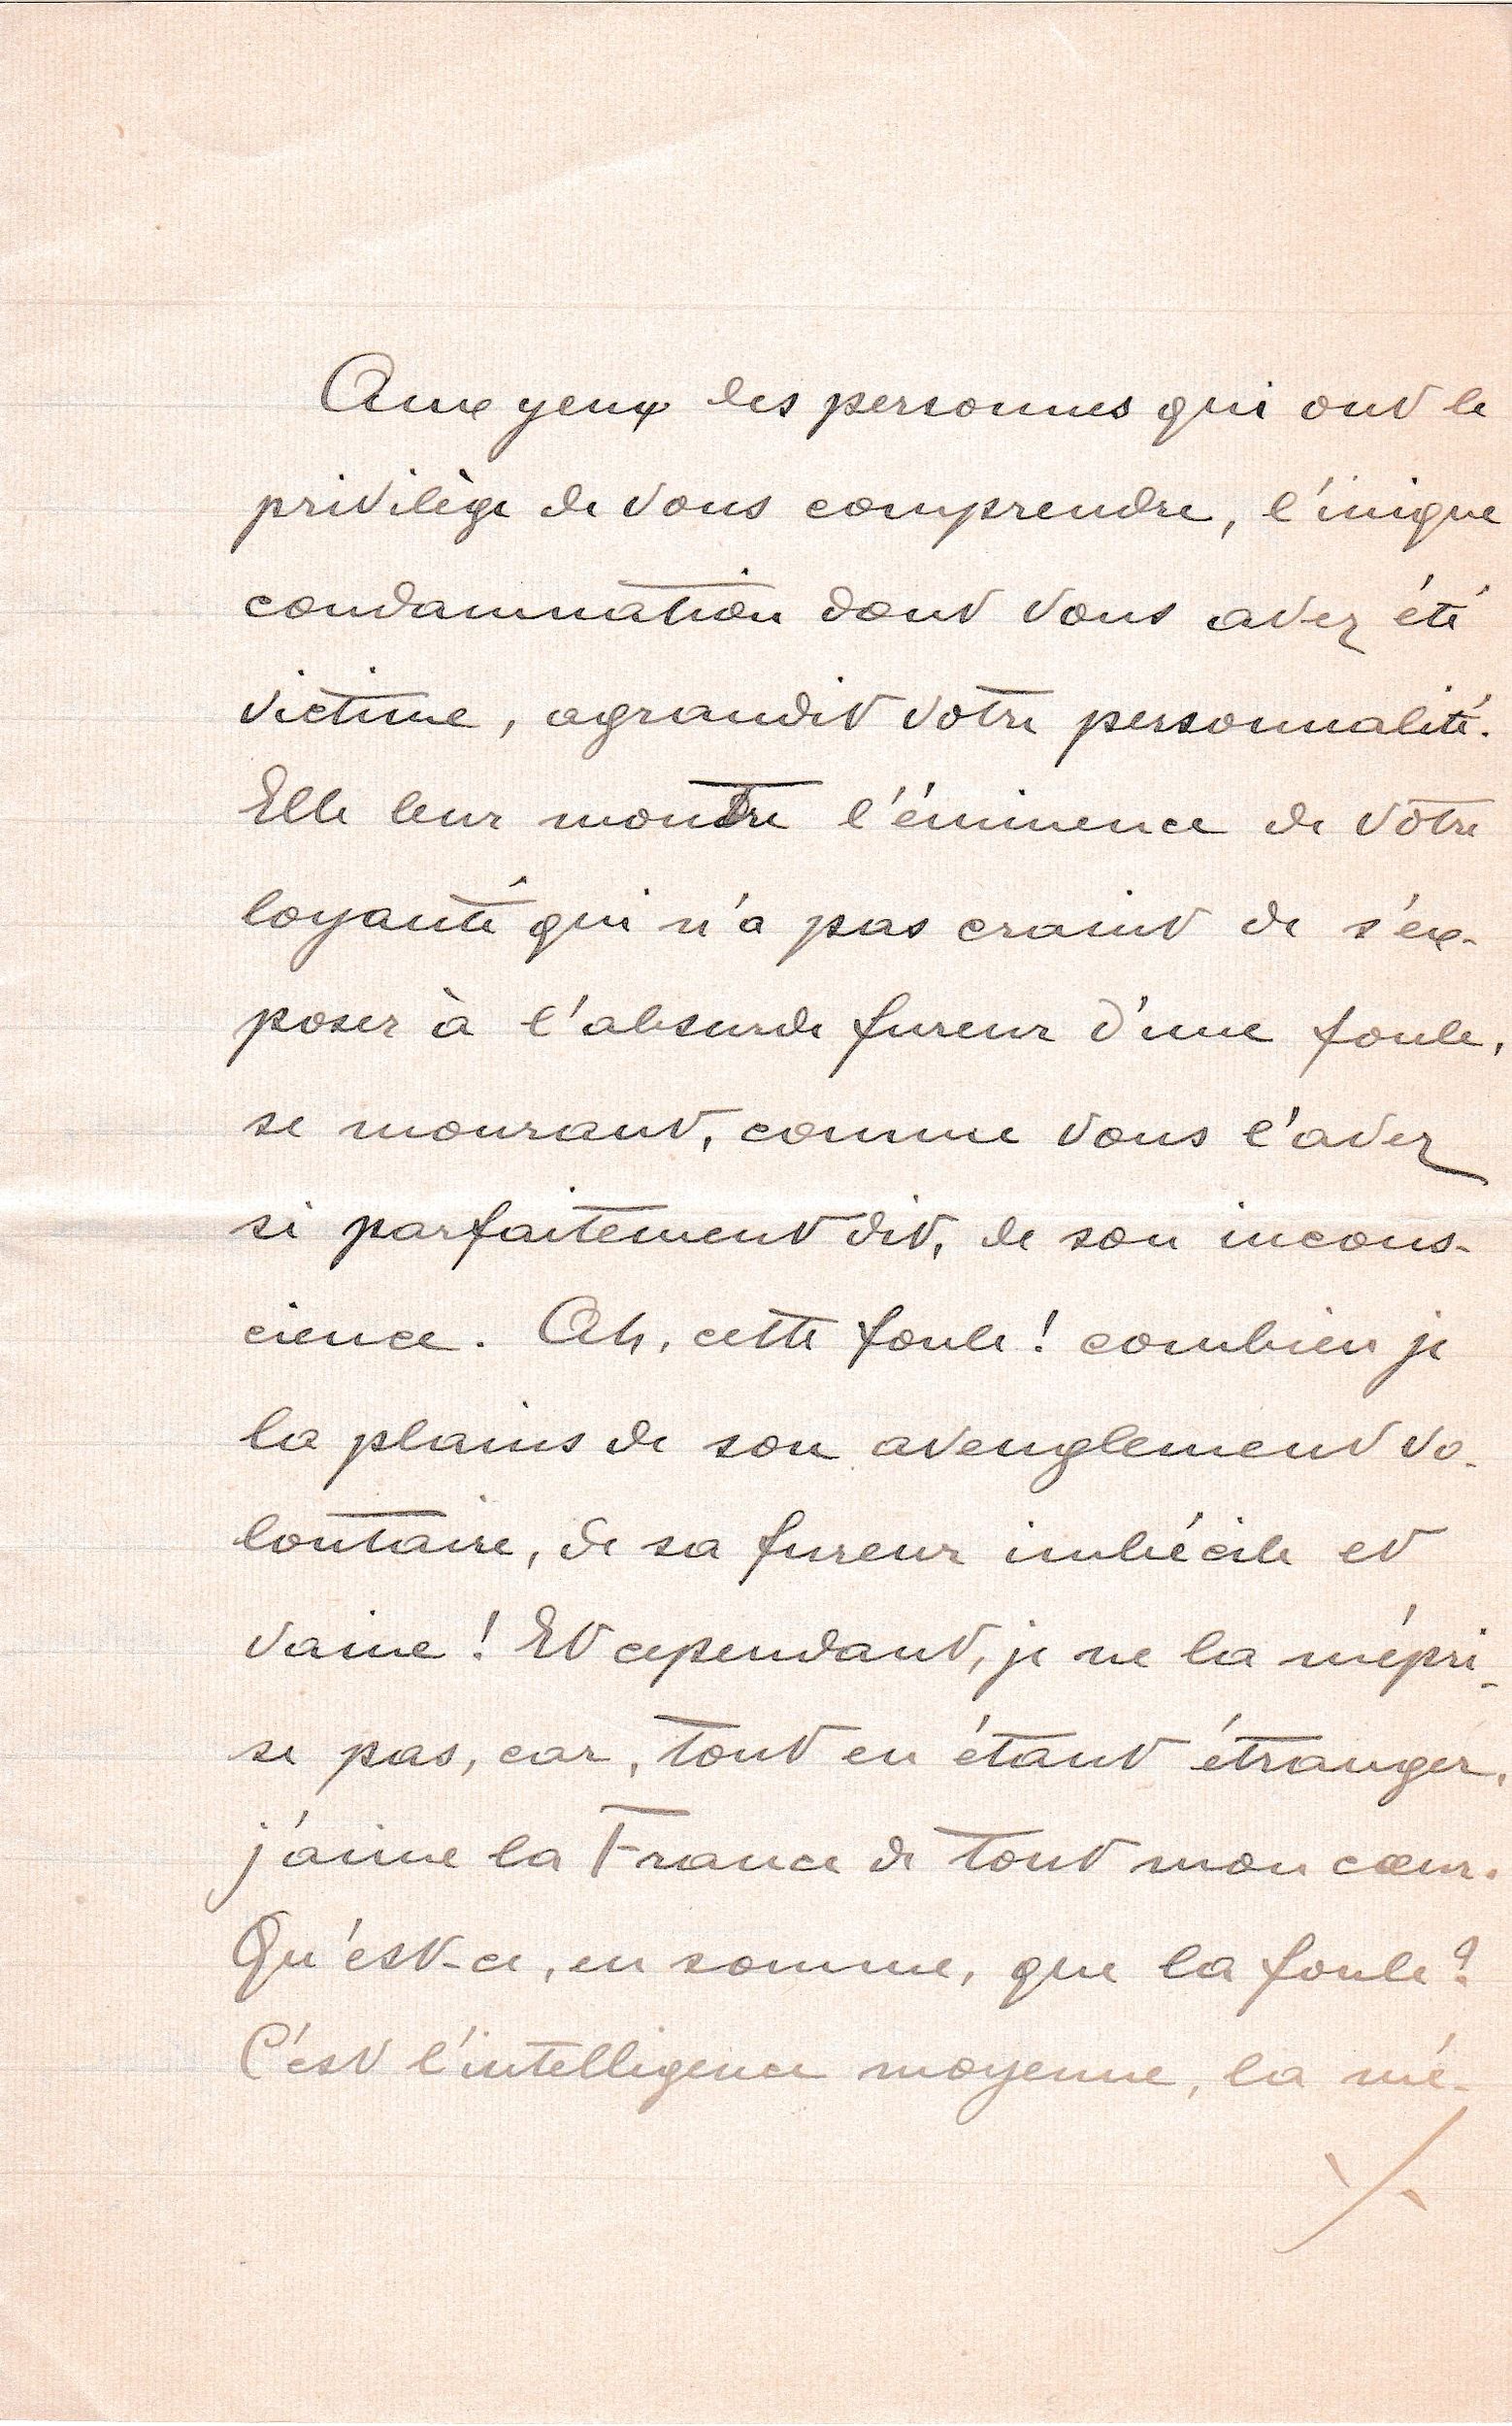 Aux yeux des personnes qui ont le
privilège de vous comprendre, l'inique
condamnation dont vous avez été
victime, agrandit votre personnalité.
Elle leur montre l'éminence de votre
loyauté qui n'a pas craint de s'ex-
poser à l'absurde fureur d'une foule,
se mourant, comme vous l'avez
si parfaitement dit, de son incons-
cience. Ah, cette foule! combien je
la plains de son aveuglement vo-
lontaire, de sa fureur imbécile et
vaine! Et cependant, je ne la mépri-
se pas, car, tout en étant étranger,
j'aime la France de tout mon cœur.
Qu'est-ce, en somme, que la foule?
C'est l'intelligence moyenne, la mé-